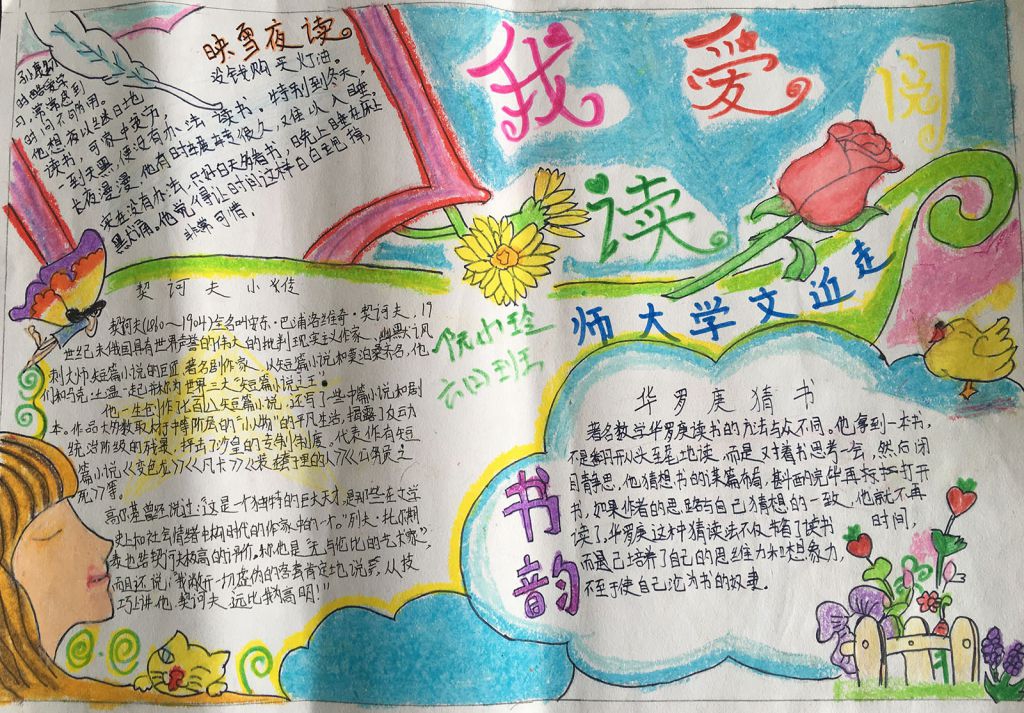 我爱阅
读
师大学文近走
倪小珍
六(1)班
映雪夜读
没钱购买灯油。
时酷爱学
习,常常感到
时间不够用。
他想夜以继日地
读书,可家中贫穷,
一到天黑,便没有办法读书。特别到冬天,
长夜漫漫,他有时辗转很久,难以入睡。
实在没有办法,只好白天多看书,晚上睡在床上
默诵。他觉得让时间这样白白地跑掉,
非常可惜。
契诃夫小传
契诃夫(1860~1904)全名叫安东·巴甫洛维奇·契诃夫,19
世纪末俄国具有世界声誉的伟大的批判现实主义作家、幽默讽
刺大师、短篇小说的巨匠、著名剧作家。以短篇小说和莫泊桑齐名,他
们和马克·吐温一起并称为世界三大"短篇小说之王"。
他一生创作了七百八短篇小说,还写了一些中篇小说和剧
本。作品大多数取材于中等阶层的"小人物"的平凡生活,揭露了反动
统治阶级的残暴,抨击了沙皇的专制制度。代表作有短
篇小说《变色龙》《凡卡》《装在套子里的人》《公务员之
死》等。
高尔基曾经说过:"这是一个独特的巨大天才,是那些在文学
史上和社会情绪中构成时代的作家中的一个。"列夫·托尔斯
泰也给契诃夫极高的评价,称他是"无与伦比的艺术家",
而且还说:"我撇开一切虚伪的客套肯定地说,从技
巧上讲,他,契诃夫,远比我高明!"
书韵
华罗庚猜书
著名数学华罗庚读书的方法与众不同。他拿到一本书,
不是翻开从头至尾地读,而是对着书思考一会,然后闭
目静思。他猜想书的谋篇布局,斟酌完毕再打开
书,如果作者的思路与自己猜想的一致,他就不再
读了。华罗庚这种猜读法不仅节省了读书时间,
而是己培养了自己的思维力和想象力,
不至于使自己沦为书的奴隶。